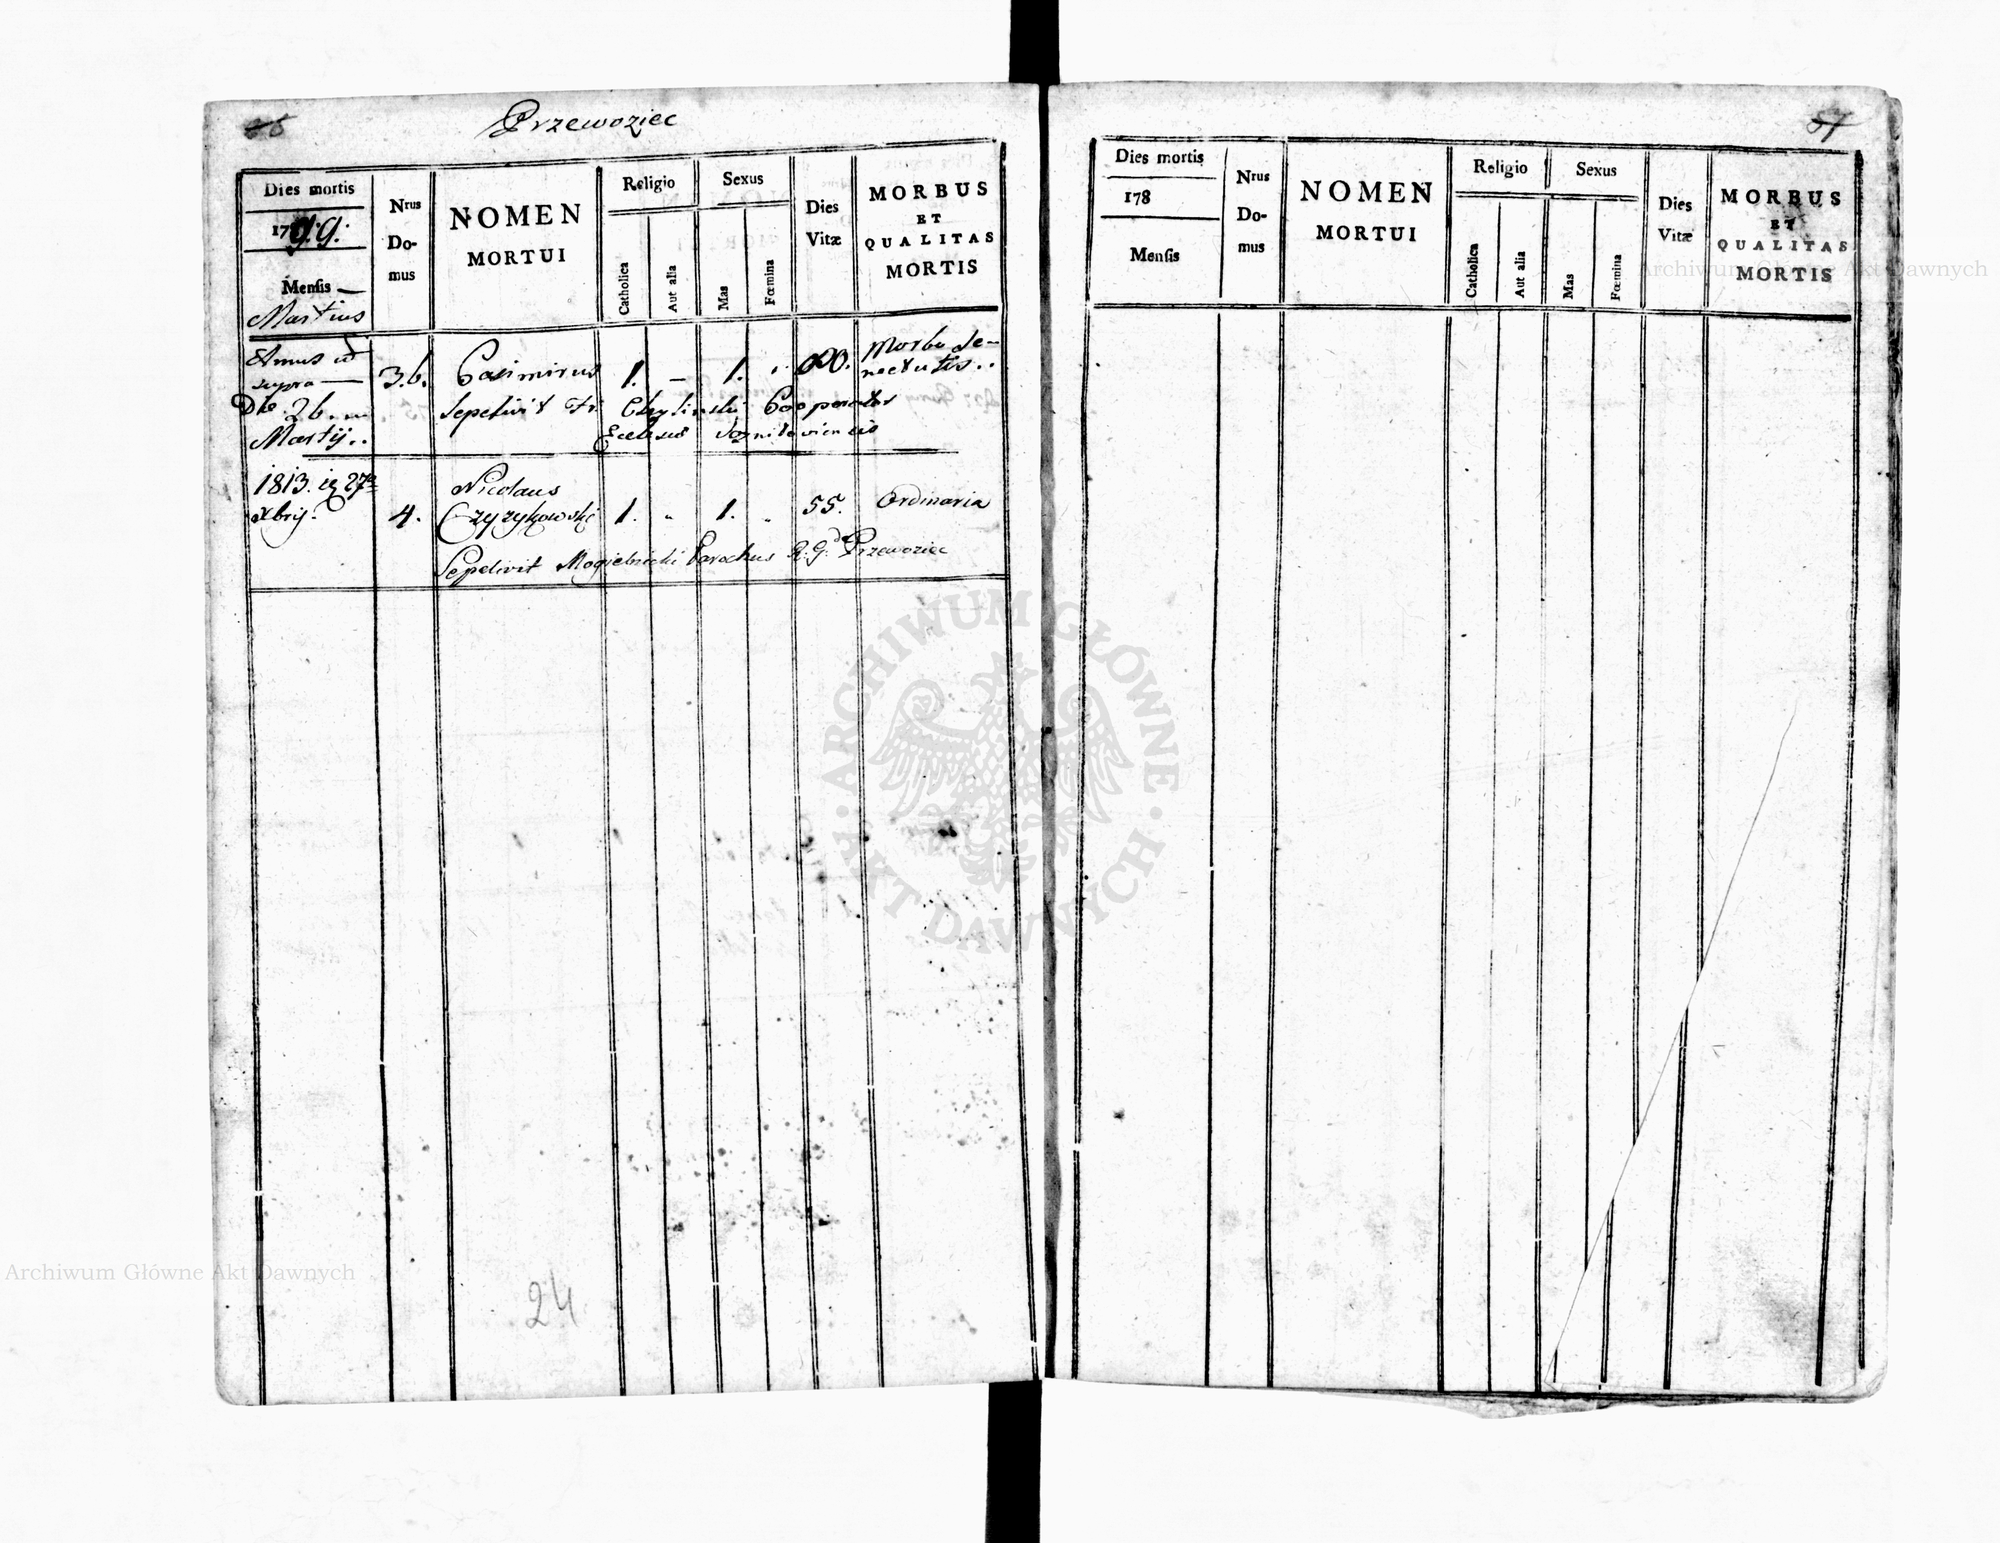 Przewoziec
Dies mortis
1799.
Mensis
Martius
Nrus Do-mus
NOMEN
MORTUI
Religio
Catholica
Aut alia
Sexus
Mas
Fœmina
Dies
Vitæ
MORBUS
ET
QUALITAS
MORTIS
Annus ut
supra
Die 26.
Martij..
36.
Casimirus
1. - 1.
80.
Morbo Se-
nectutis..
Sepelivit Fr. Chylinski Cooperator
Ecclesiae Woyniloviensis
1813. 27
Xbris.
4.
Nicolaus
Czyzykowski
1. " 1. "
55.
Ordinaria
Sepelivit Mogielnicki Parochus R. G. de Przewoziec
24
57
Dies mortis
178
Mensis
Nrus
Do-
mus
NOMEN
MORTUI
Religio
Catholica
Aut alia
Sexus
Mas
Fœmina
Dies
Vitæ
MORBUS
ET
QUALITAS
MORTIS
Archiwum Główne Akt Dawnych
ARCHIWUM GŁÓWNE AKT DAWNYCH
Archiwum Główne Akt Dawnych